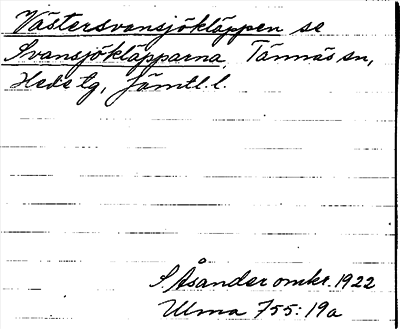 Västersvansjökläppen se
Svansjökläpparna, Tännäs sn,
Hede tg, Jämtl. l.
S. Åsander omkr. 1922
Ulma 755:19a